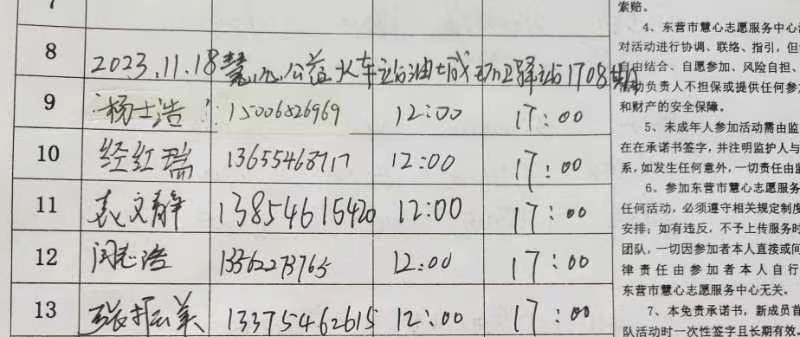 7
8 2023.11.18慧心公益火车站油城动卫驿站1708期
9 杨士浩 15006826969 12:00 17:00
10 经红瑞 13655463717 12:00 17:00
11 袁文静 13854615420 12:00 17:00
12 闫志浩 13562273765 12:00 17:00
13 张振美 13375462615 12:00 17:00
索赔。
4、东营市慧心志愿服务中心
对活动进行协调、联络、指引，但
自由结合、自愿参加、风险自担、
活动负责人不担保或提供任何参
和财产的安全保障。
5、未成年人参加活动需由监
在在承诺书签字，并注明监护人与
系，如发生任何意外，一切责任由监
6、参加东营市慧心志愿服务
任何活动，必须遵守相关规定制度
安排；如有违反，不予上传服务时
团队，一切因参加者本人直接或间
律责任由参加者本人自行
东营市慧心志愿服务中心无关。
7、本免责承诺书，新成员首
队活动时一次性签字且长期有效。